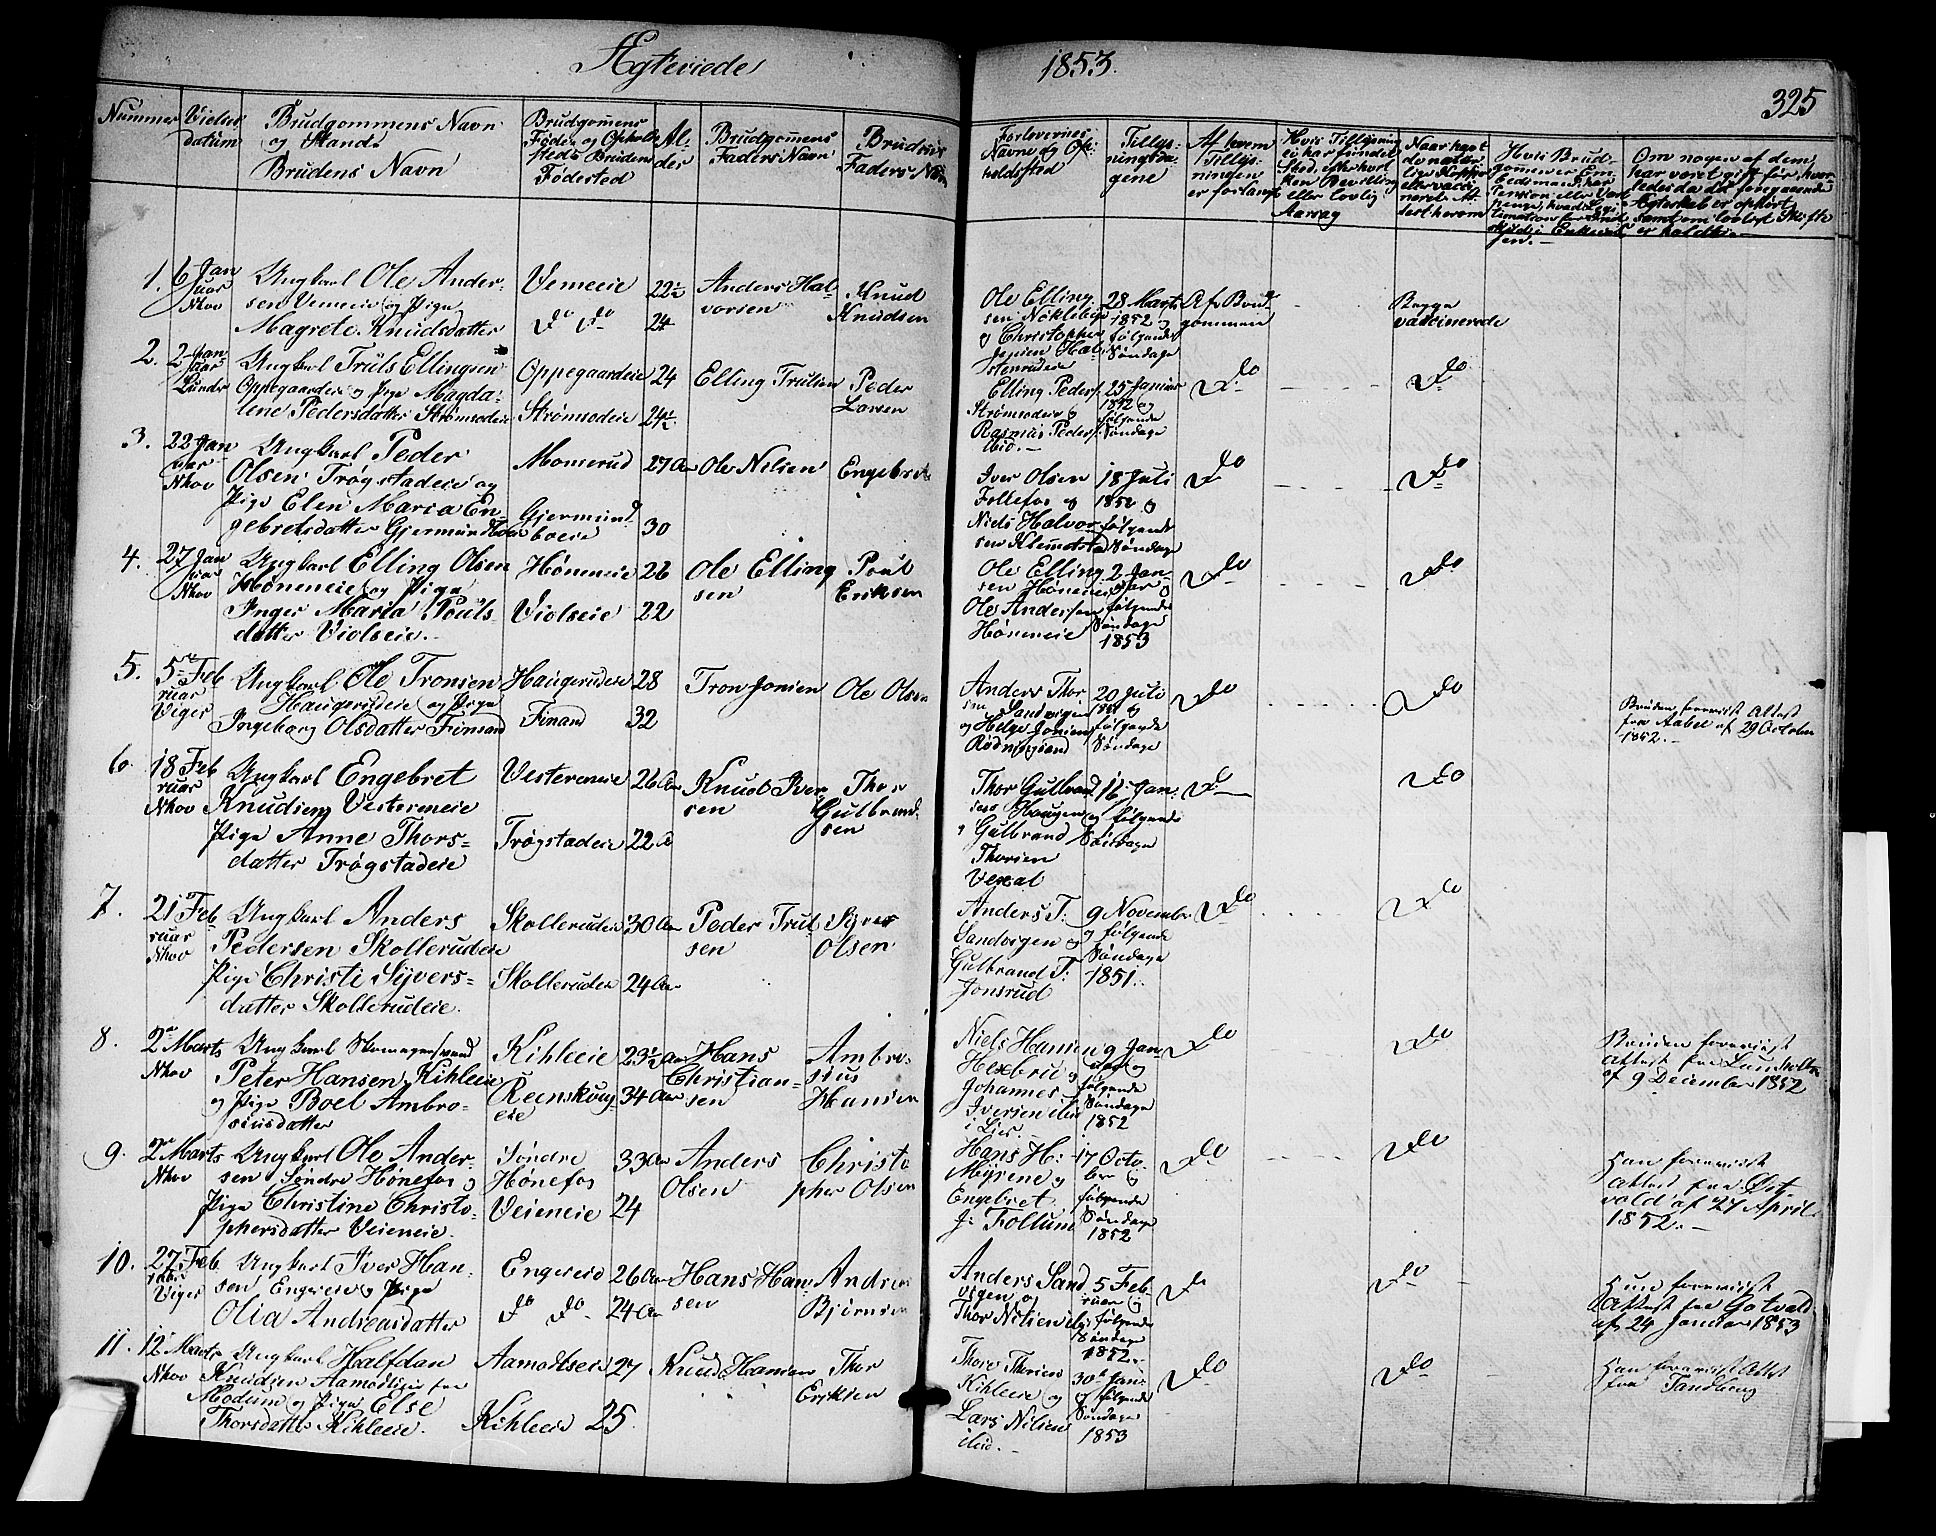 Ægteviede 1853.
325
Nummer
Vielses datum
Brudgommens Navn
og Stand
Brudens Navn
Brudgomens
Føde og Ophold
sted Brudens
Fødested
Al-
der
Brudgomens
Faders Navn
Brudens
Faders Navn
Forlovernes
Navne og Op-
holdsted
Tillys-
ningsda-
gene
Af hvem
Tillys-
ningen
er forlangt
Om nogen af dem
har været gift før, hvor-
ledes da det foregaaende
Ægteskab er ophørt
samt om lovligt Skifte
er holdt
1. 6 Jan
uar
Nhov
Ungkarl Ole Ander-
sen Vemeeie og Pige
Magrete Knudsdatter
Vemeeie
do do
22½
24
Anders Hal-
vorsen
Knud
Knudsen
Ole Elling
sen Nøkleby
og Christopher
28 Marts
1852 og
følgende
Søndage
Af Brud-
gommen
Begge
vaccinerede
2. 2 Jan-
uar
Lunder
Ungkarl Truls Ellingsen
Oppegaardeie og Pige Magda-
lene Pedersdatter Strømsodeie
Oppegaardeie
Strømsodeie
24
24½
Elling Trulsen
Peder
Larsen
Elling Peders:
Strømsodeie og
Rasmus Peders:
ibid.
25 Janiar
1852 og
følgende
Søndage
do
do
3. 22 Jan
uar
Nhov
Ungkarl Peder
Olsen Trøgstadeie og
Pige Elen Maria En-
gebretsdatter Gjermundboeie
Momerud
Gjermund-
boeie
27 Aar
30
Ole Nilsen
Engebret
Iver Olsen
Follefos og
Niels Halvor-
sen Klemetsta
18 Juli
1852 og
følgende
Søndage
do
do
4. 27 Jan
uar
Nhov
Ungkarl Elling Olsen
Høneneie og Pige
Inger Maria Pouls-
datter Violseie
Høneneie
Violseie
26
22
Ole Elling
sen
Poul
Eriksen
Ole Elling
sen Høneneie
Ole Andersen
Høneneie
2 Jan-
uar og
følgende
Søndage
1853
do
do
5. 5te Feb
ruar
Viger
Ungkarl Ole Tronsen
Haugerudeie og Pige
Ingeborg Olsdatter Finsand
Haugerudeie
Finsand
28
32
Tron Jonsen
Ole Olsen
Anders Thor
sen Sandvigen
og Helge Jonsen
Rødningsand
20 Juli
1851 og
følgende
Søndage
do
do
Bruden foreviist Attest
fra Aabel af 29 October
1852.
6. 18 Feb
ruar
Nhov
Ungkarl Engebret
Knudsen Vesterneie
Pige Anne Thors-
datter Trøgstadeie
Vesterneie
Trøgstadeie
26 Aar
22
Knud Iver
sen
Thor
Gulbrand-
sen
Thor Gulbrand
sen Haugen
og Gulbrand
Thorsen
Vexal
16 Jan:
og følgende
Søndage
do
do
7. 21 Feb
ruar
Nhov
Ungkarl Anders
Pedersen Skollerudeie
Pige Christi Syvers-
datter Skollerudeie
Skollerudeie
Skollerudeie
30 Aar
24 Aar
Peder Trul
sen
Syver
Olsen
Anders T:
Sandvigen og
Gulbrand T:
Jonsrud
9 Novembr
følgende
Søndage
1851
do
do
8. 2 Marts
Nhov
Ungkarl Skomagersvend
Peter Hansen Kihleeie
og Pige Boel Ambro-
siusdatter
Kihleeie
Reenskoug-
eie
23½ Aar
34 Aar
Hans
Christian-
sen
Ambro
sius
Hansen
Niels Hansen
Hexbrie og
Johannes
Iversen ibid
i Lier.
9 Jan-
uar og
følgende
Søndage
1852
do
do
Bruden foreviist
Attest fra Lumholtz
af 9 December 1852
9. 2 Marts
Nhov
Ungkarl Ole Ander-
sen Søndre Hønefos og
Pige Christine Christo-
phersdatter Veieneie
Søndre
Hønefos
Veieneie
33 Aar
24
Anders
Olsen
Christo
pher Olsen
Hans H:
Myrene og
Engebret
J: Follum
17 Octo-
ber og
følgende
Søndage
1852
do
do
Han foreviist
Attest fra Diet-
vald af 27 April
1852.
10. 27 Feb
ruar
Viger
Ungkarl Iver Han-
sen Engereie og Pige
Olia Andreasdatter
Engereie
do do
26 Aar
24 Aar
Hans Han-
sen
Andreas
Bjørnsen
Anders Sand
vigen og
Thor Nilsen
5 Feb
ruar og
følgende
Søndage
1852.
do
do
Hun foreviist
Attest fra Gotvald
af 24 Januar 1853
11. 12 Marts
Nhov
Ungkarl Halfdan
Knudsen Aamodtseie fra
Modum og Pige Else
Thorsdatter Kihleeie.
Aamodtseie
Kihleeie
27
25
Knud Hansen
Thor
Eriksen
Thore Thorsen
Kihleeie og
Lars Nilsen
ibid.
30te Jan-
og følgende
Søndage
1853
do
do
Han foreviist Attest
fra Tandberg